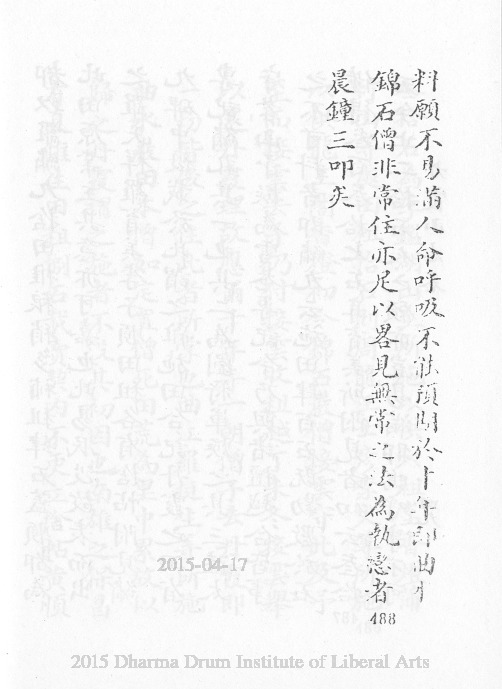 料願不易滿人命呼吸不能預期於十年即
錦石僧非常住亦足以畧見無常之法為執戀者
晨鐘三叩矣
488
2015-04-17
2015 Dharma Drum Institute of Liberal Arts